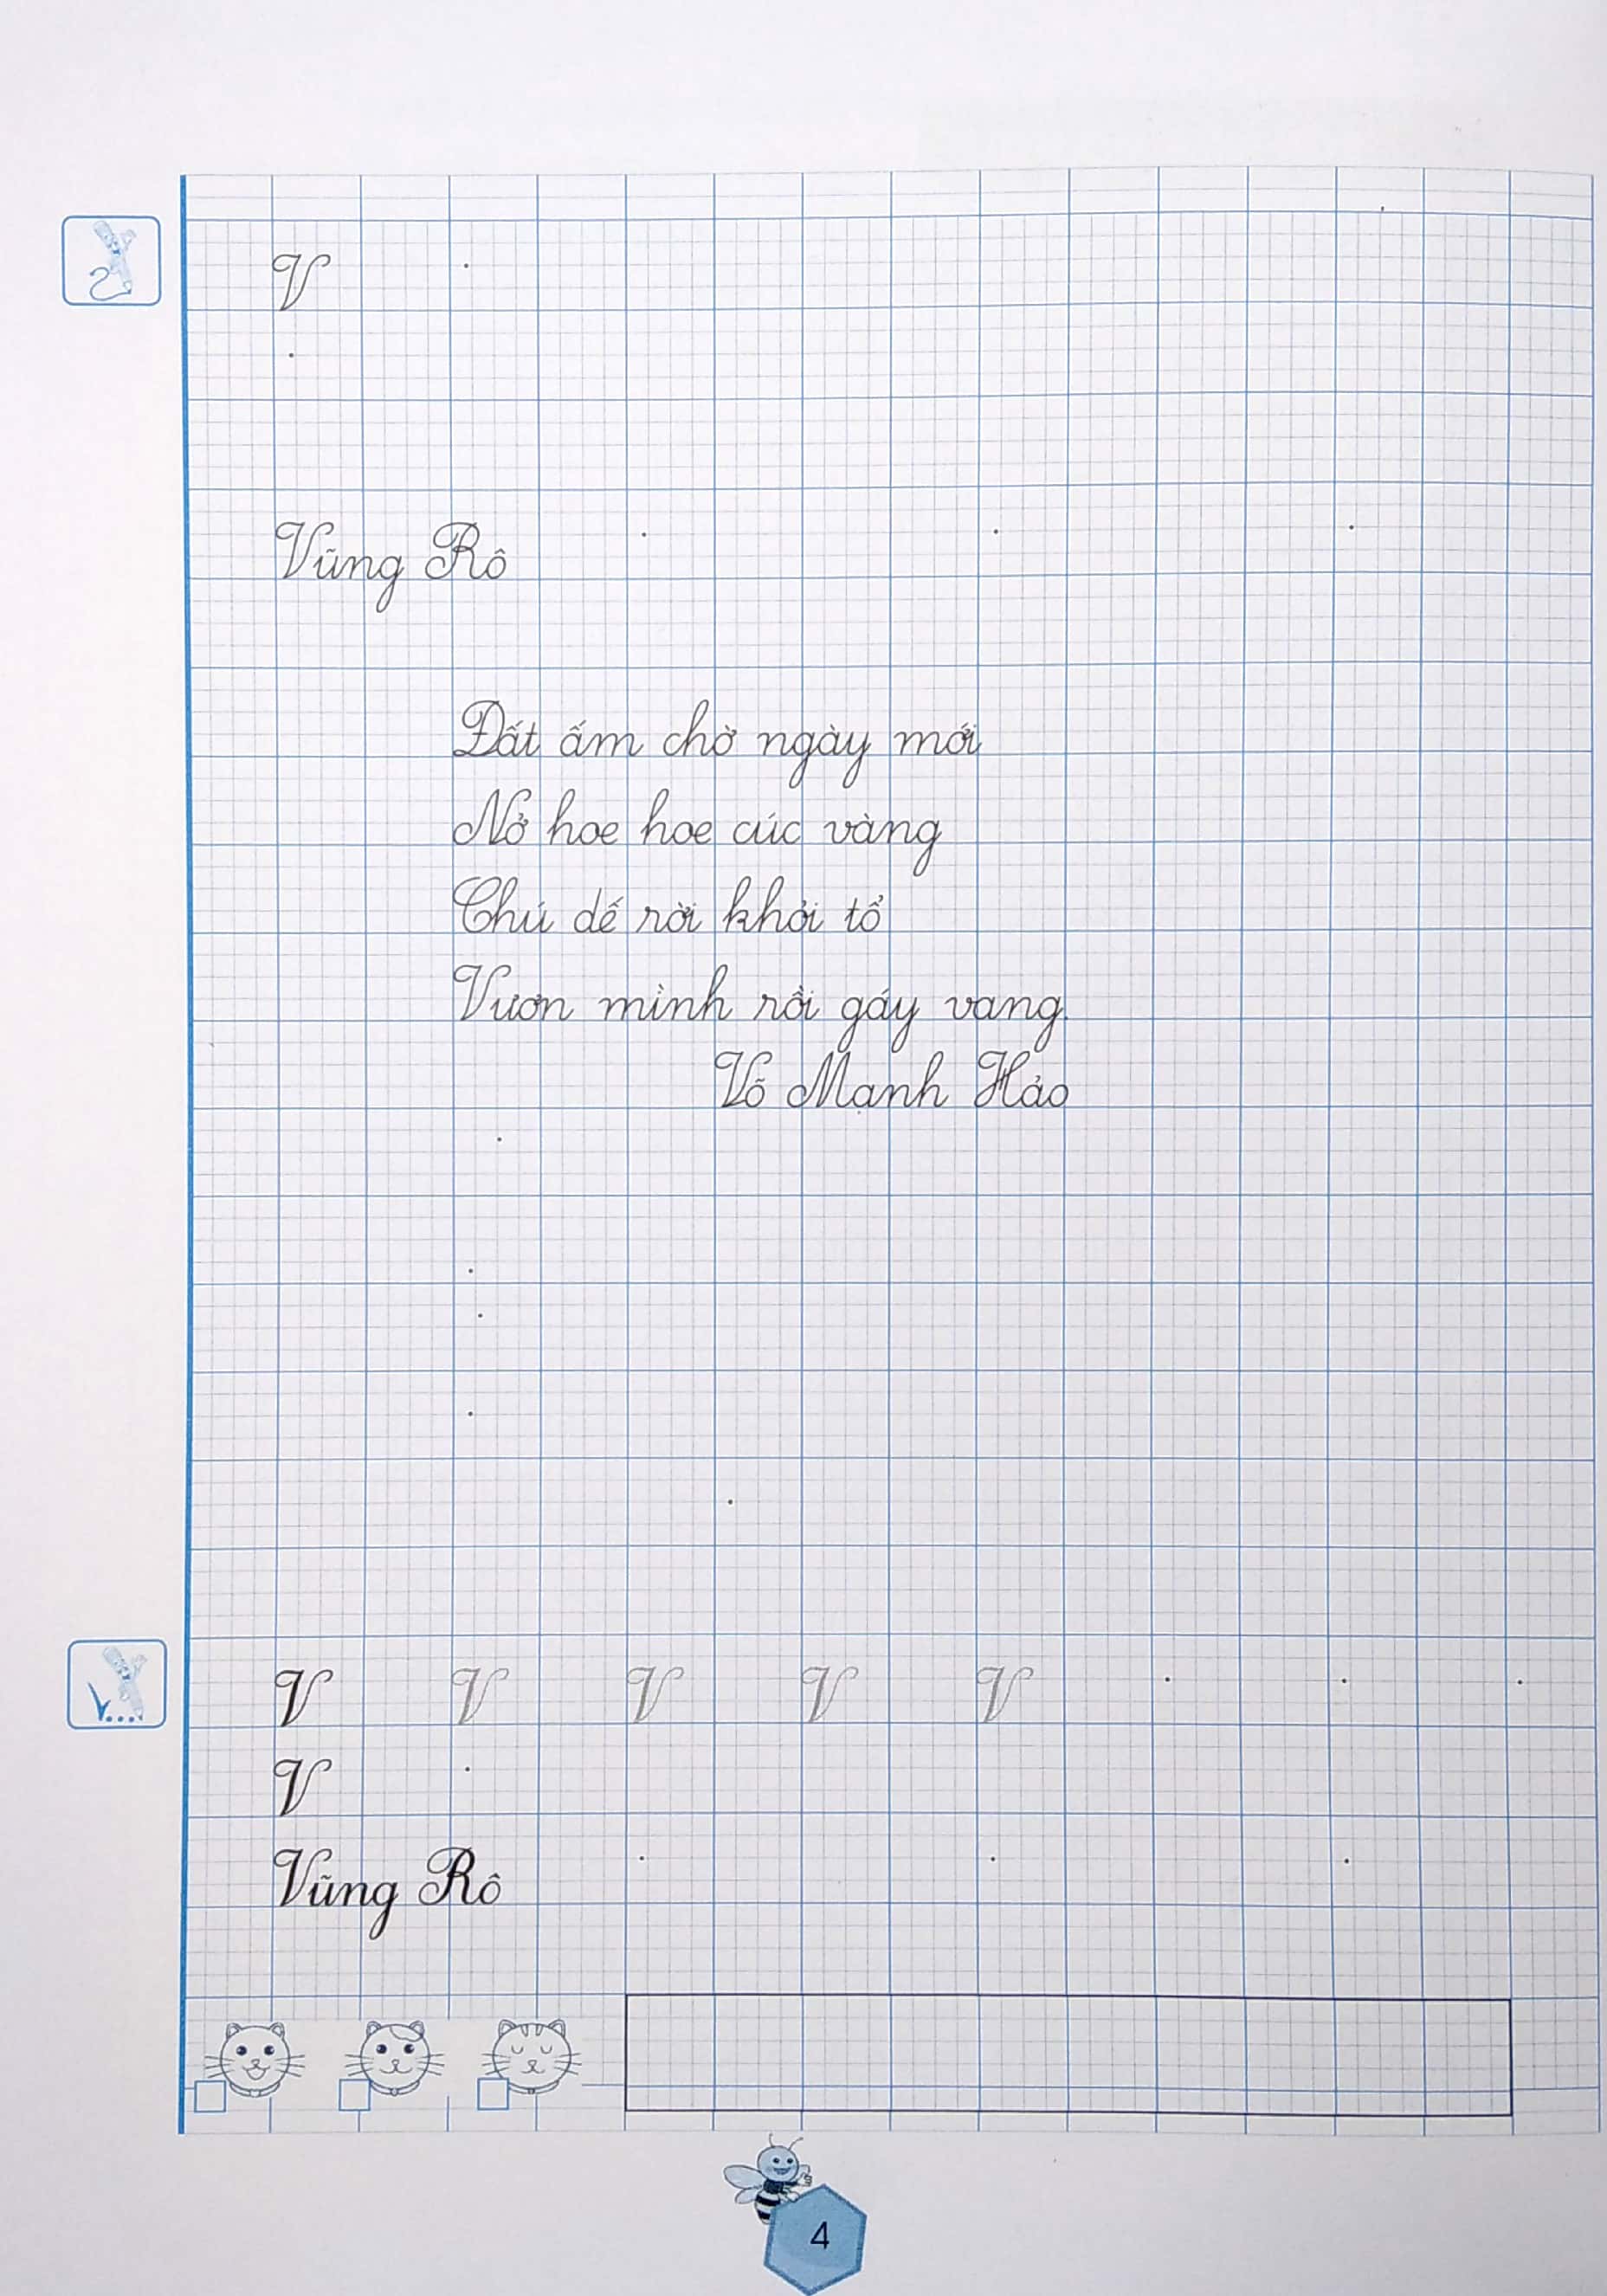 V
Vũng Rô
Đất ấm chờ ngày mới
Nở hoe hoe cúc vàng
Chú dế rời khỏi tổ
Vươn mình rồi gáy vang.
Võ Mạnh Hảo
V V V V V
V
Vũng Rô
4